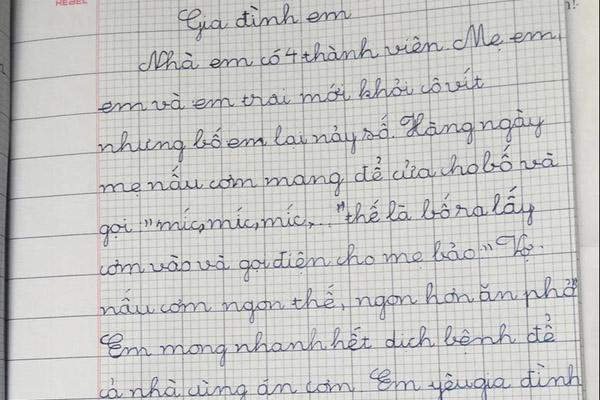 REBEL
Gia đình em
Nhà em có 4 thành viên. Mẹ em,
em và em trai mới khỏi cô vít
nhưng bố em lai nảy số. Hàng ngày
mẹ nấu cơm mang để cửa cho bố và
gọi "míc, míc, míc,... "thế là bố ra lấy
cơm vào và gọi điện cho mẹ bảo" Vợ
nấu cơm ngon thế, ngon hơn ăn phở"
Em mong nhanh hết dich bênh để
cả nhà cùng ăn cơm Em yêu gia đình